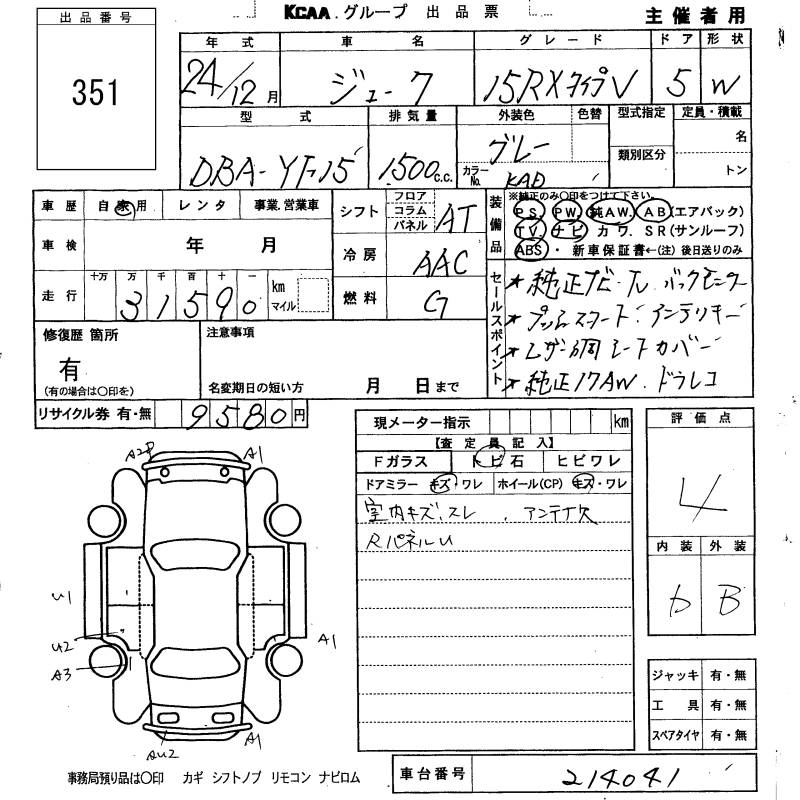 KCAA グループ 出品票
主催者用
出品番号
351
年式 車名 グレード ドア 形状
24/12月 ジューク 15RXタイプV 5 W
型式 排気量 外装色 色替 型式指定 定員・積載
DBA-YF15 1500c.c. グレー 名
カラーNo. KAD 類別区分 トン
車歴 自家用 レンタ 事業.営業車
シフト フロア コラム パネル AT
車検 年 月
冷房 AAC
走行 十万 万 千 百 十 一 km マイル
31590
燃料 G
装備品 ※純正のみ〇印をつけて下さい。
P.S. P.W. 純A.W. A.B(エアバック)
TV. ナビ カワ. S R(サンルーフ)
ABS ・ 新車保証書←(注) 後日送りのみ
セールスポイント
★純正ナビ・TV バックモニター
★プッシュスタート インテリキー
★レザー調シートカバー
★純正17AW. ドラレコ
修復歴 箇所
有
(有の場合は〇印を)
注意事項
名変期日の短い方 月 日まで
リサイクル券 有・無 9580円
現メーター指示 km
【査定員記入】
Fガラス トビ石 ヒビワレ
ドアミラー キズ・ワレ ホイール(CP) キズ・ワレ
室内キズ、スレ . アンテナ欠
RパネルU
評価点
4
内装 外装
B
ジャッキ 有・無
工具 有・無
スペアタイヤ 有・無
A2P A1
U1
U2 A1
A3
AU2 A1
事務局預り品は〇印 カギ シフトノブ リモコン ナビロム
車台番号 214041